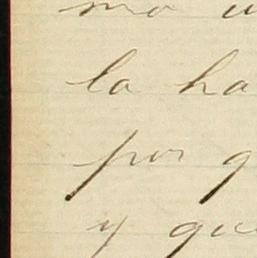 mo u
la ha
por q
y que